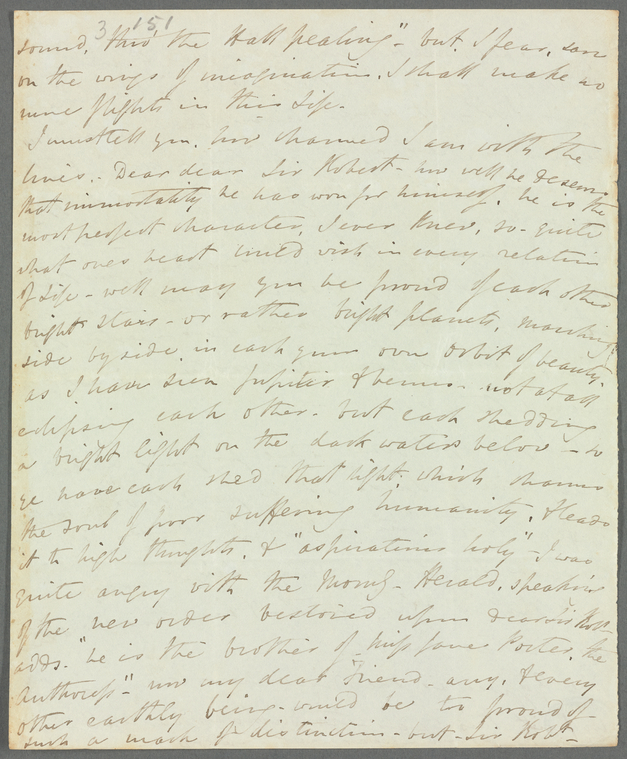 3 151
sound, "thro' the Hall pealing" - but, I fear, save
on the wings of imagination, I shall make no
more flights in this Life -
I must tell you, how charmed I am with the
lines. - Dear dear Sir Robert - how well he deserves
that immortality he has won for himself, he is the
most perfect character, I ever knew, so quite
what ones heart could wish in every relation
of Life - well may you be proud of each other
bright stars - or rather bright planets, marching
side by side, in each your own orbit of beauty
as I have seen Jupiter & Venus - not at all
eclipsing each other - but each shedding
a bright light on the dark waters below - so
ye have each shed that light, which charms
the soul of poor suffering humanity, & leads
it to high thoughts, & "aspirations holy" - I was
quite angry with the Morng - Herald, speaking
of the new order bestowed upon dear Sir Robt
adds - "he is the brother of Miss Jane Porter, the
Authoress" - now my dear Friend - any, & every
other earthly being - would be to proud of
such a mark of distinction - but - Sir Robt -